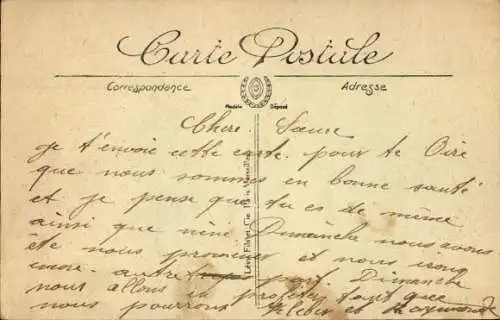 Carte Postale
Correspondance
Adresse
Modèle Déposé
Chère Sœure
Je t'envoie cette carte pour te Dire
que nous sommes en bonne santé
et je pense que tu es de même
ainsi que Dimanche nous avons
été nous promener et nous irons
autre part. Dimanche
nous allons en profiter tant que
nous pourrons Kleber et Raymonde
Lévy, & Cie, Paris, Marseille